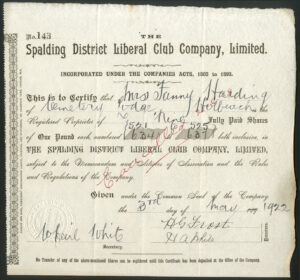 No. 143
THE
Spalding District Liberal Club Company, Limited.
INCORPORATED UNDER THE COMPANIES ACTS, 1862 to 1893.
This is to Certify that Mrs Fanny Harding
of Cemetery Holbeach
Registered Proprietor of Nine Fully Paid Shares
of One Pound each numbered both inclusive, in
THE SPALDING DISTRICT LIBERAL CLUB COMPANY, LIMITED,
subject to the Memorandum and Articles of Association and the Rules
and Regulations of the Company.
Given under the Common Seal of the Company
the 3rd day of May 1922
White
Secretary.
No Transfer of any of the above-mentioned Shares can be registered until this Certificate has been deposited at the Office of the Company.